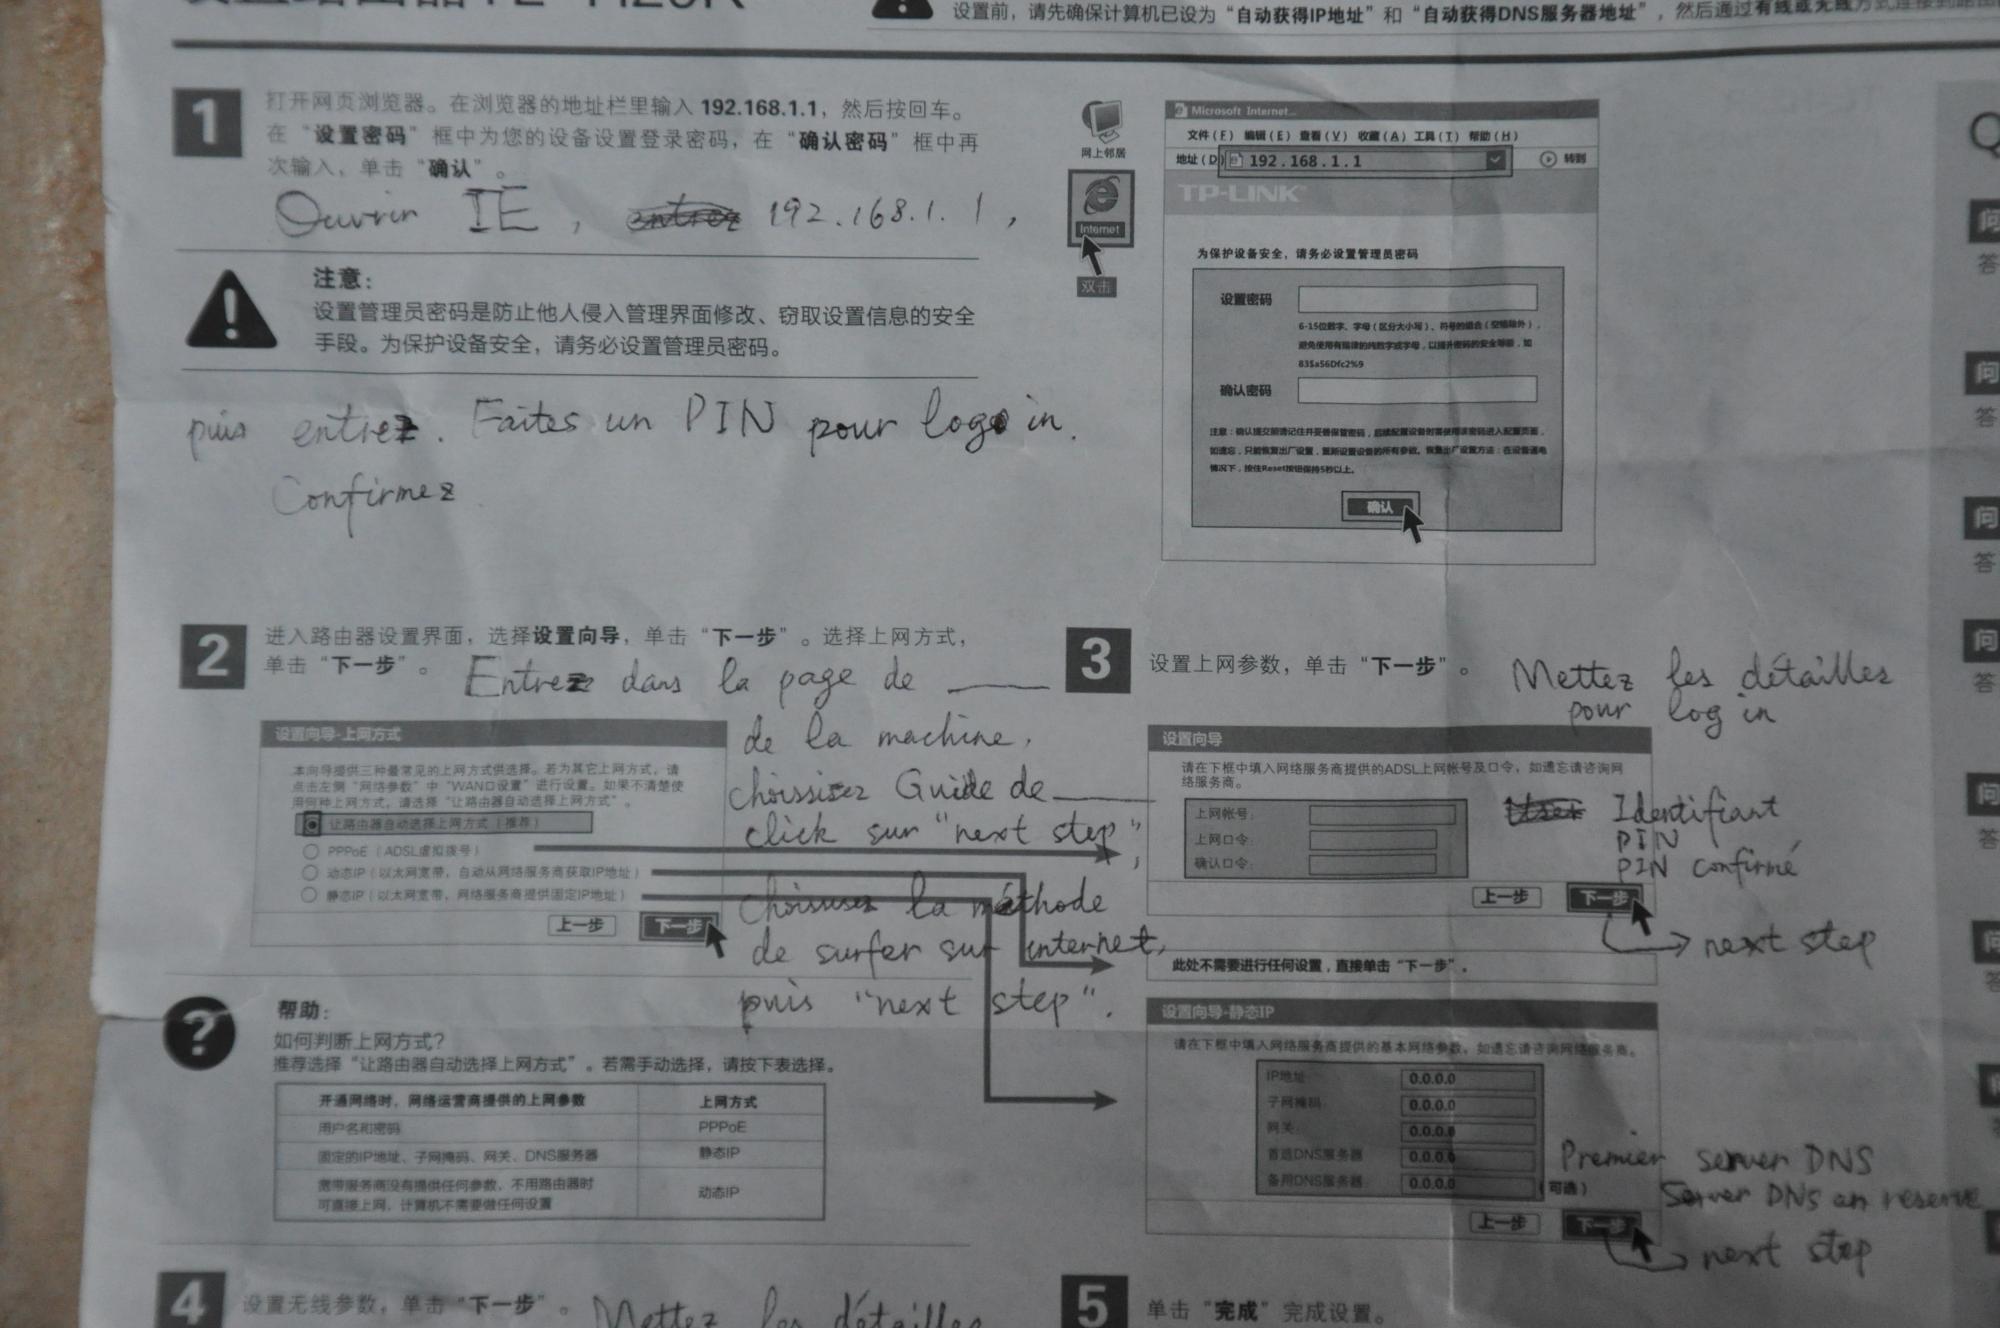 设置前，请先确保计算机已设为“自动获得IP地址”和“自动获得DNS服务器地址”，然后通过有线或无线方式连接到路由
1
打开网页浏览器。在浏览器的地址栏里输入 192.168.1.1，然后按回车。
在“设置密码”框中为您的设备设置登录密码，在“确认密码”框中再
次输入，单击“确认”。
Ouvrir IE, 192.168.1.1,
注意：
设置管理员密码是防止他人侵入管理界面修改、窃取设置信息的安全
手段。为保护设备安全，请务必设置管理员密码。
puis entrez. Faites un PIN pour log in.
Confirmez
网上邻居
Internet
双击
Microsoft Internet...
文件(F) 编辑(E) 查看(V) 收藏(A) 工具(T) 帮助(H)
地址(D) 192.168.1.1 转到
TP-LINK
为保护设备安全，请务必设置管理员密码
设置密码
6-15位数字、字母（区分大小写）、符号的组合（空格除外），
避免使用有规律的纯数字或字母，以提升密码的安全等级，如
83$a56Dfc2%9
确认密码
注意：确认提交前请记住并妥善保管密码，后续配置设备时需使用该密码进入配置页面，
如遗忘，只能恢复出厂设置，重新设置设备的所有参数。恢复出厂设置方法：在设备通电
情况下，按住Reset按钮保持5秒以上。
确认
2
进入路由器设置界面，选择设置向导，单击“下一步”。选择上网方式，
单击“下一步”。
Entrez dans la page de ____
de la machine,
choissisez Guide de ____
click sur "next step",
choisisez la méthode
de surfer sur internet,
puis "next step".
设置向导-上网方式
本向导提供三种最常见的上网方式供选择。若为其它上网方式，请
点击左侧“网络参数”中“WAN口设置”进行设置。如果不清楚使
用何种上网方式，请选择“让路由器自动选择上网方式”。
让路由器自动选择上网方式（推荐）
PPPoE（ADSL虚拟拨号）
动态IP（以太网宽带，自动从网络服务商获取IP地址）
静态IP（以太网宽带，网络服务商提供固定IP地址）
上一步 下一步
帮助：
如何判断上网方式？
推荐选择“让路由器自动选择上网方式”。若需手动选择，请按下表选择。
开通网络时，网络运营商提供的上网参数 上网方式
用户名和密码 PPPoE
固定的IP地址、子网掩码、网关、DNS服务器 静态IP
宽带服务商没有提供任何参数，不用路由器时
可直接上网，计算机不需要做任何设置 动态IP
3
设置上网参数，单击“下一步”。
Mettez les détailles
pour log in
设置向导
请在下框中填入网络服务商提供的ADSL上网帐号及口令，如遗忘请咨询网
络服务商。
上网帐号：
上网口令：
确认口令：
Identifiant
PIN
PIN confirmé
上一步 下一步
next step
此处不需要进行任何设置，直接单击“下一步”。
设置向导-静态IP
请在下框中填入网络服务商提供的基本网络参数，如遗忘请咨询网络服务商。
IP地址： 0.0.0.0
子网掩码： 0.0.0.0
网关： 0.0.0.0
首选DNS服务器： 0.0.0.0
备用DNS服务器： 0.0.0.0（可选）
Premier server DNS
Server DNS en reserve
上一步 下一步
next step
4
设置无线参数，单击“下一步”。
Mettez les détailles
5
单击“完成”完成设置。
Q
问
答
问
答
问
答
问
答
问
答
问
答